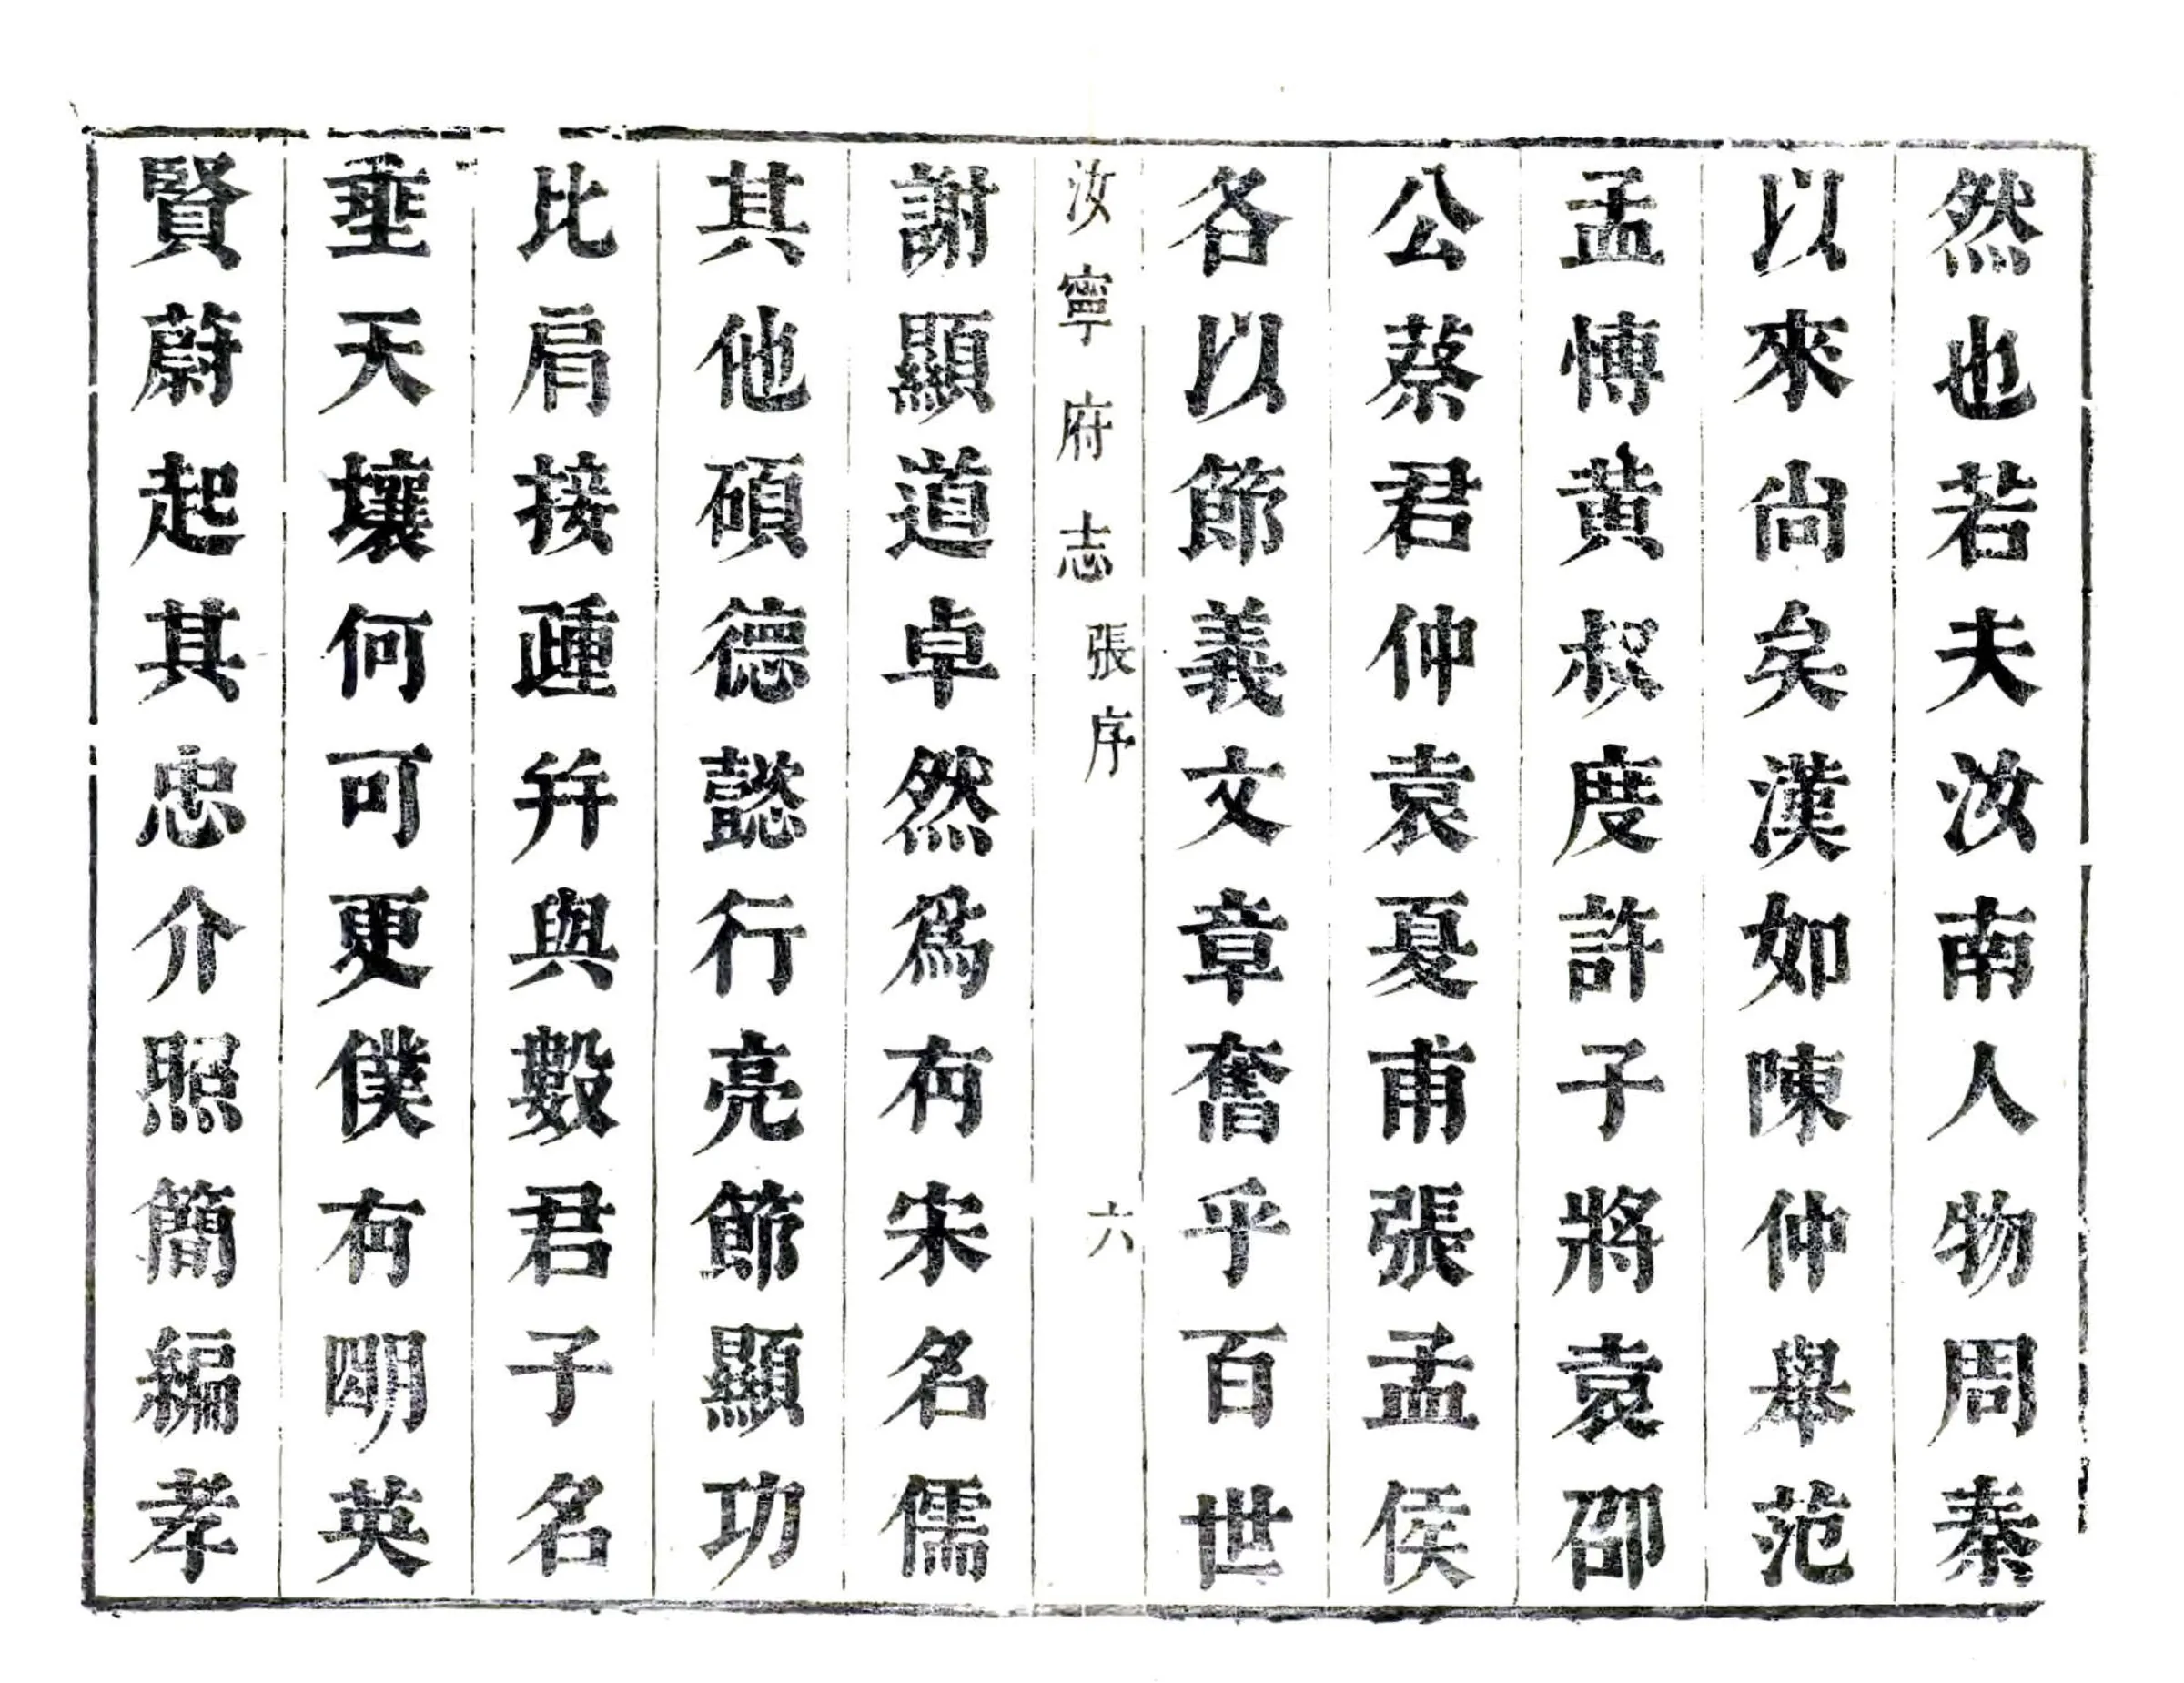 然也若夫汝南人物周秦
以來尚矣漢如陳仲舉范
孟博黄叔度許子將袁邵
公蔡君仲袁夏甫張孟侯
各以節義文章奮乎百世
汝寧府志 張序 六
謝顯道卓然爲有宋名儒
其他碩德懿行亮節顯功
比肩接踵并與數君子名
垂天壤何可更僕有明英
賢蔚起其忠介照簡編孝